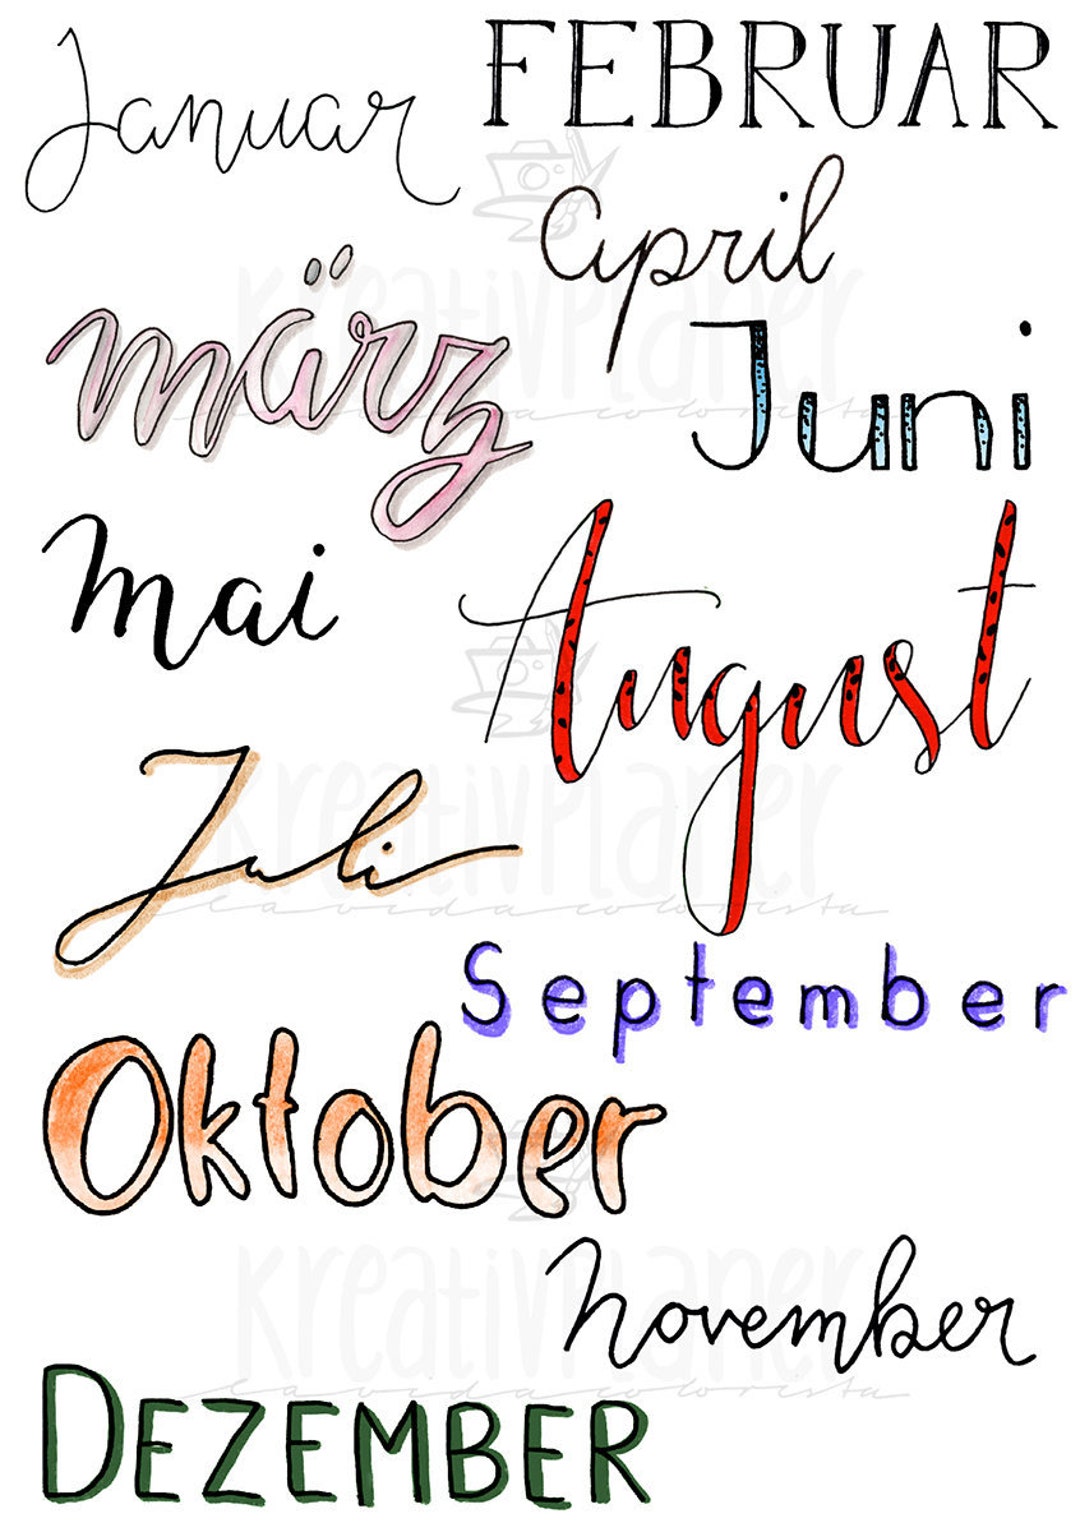 Januar
FEBRUAR
April
märz
Juni
mai
August
Juli
September
Oktober
November
DEZEMBER
kreativPlaner
la vida colorista
kreativPlaner
la vida colorista
kreativPlaner
la vida colorista